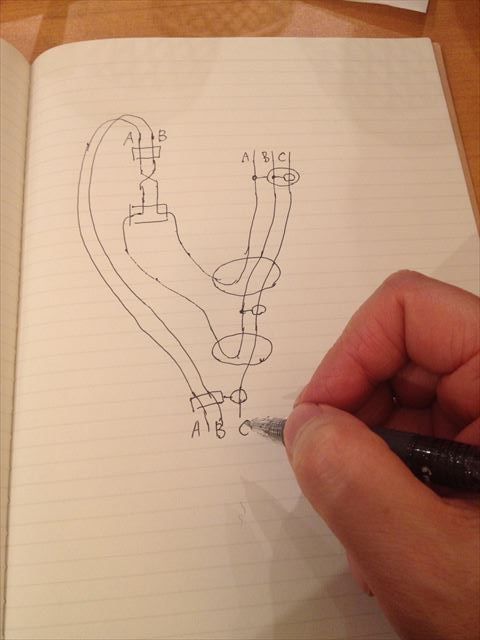 A B
A B C
A B C